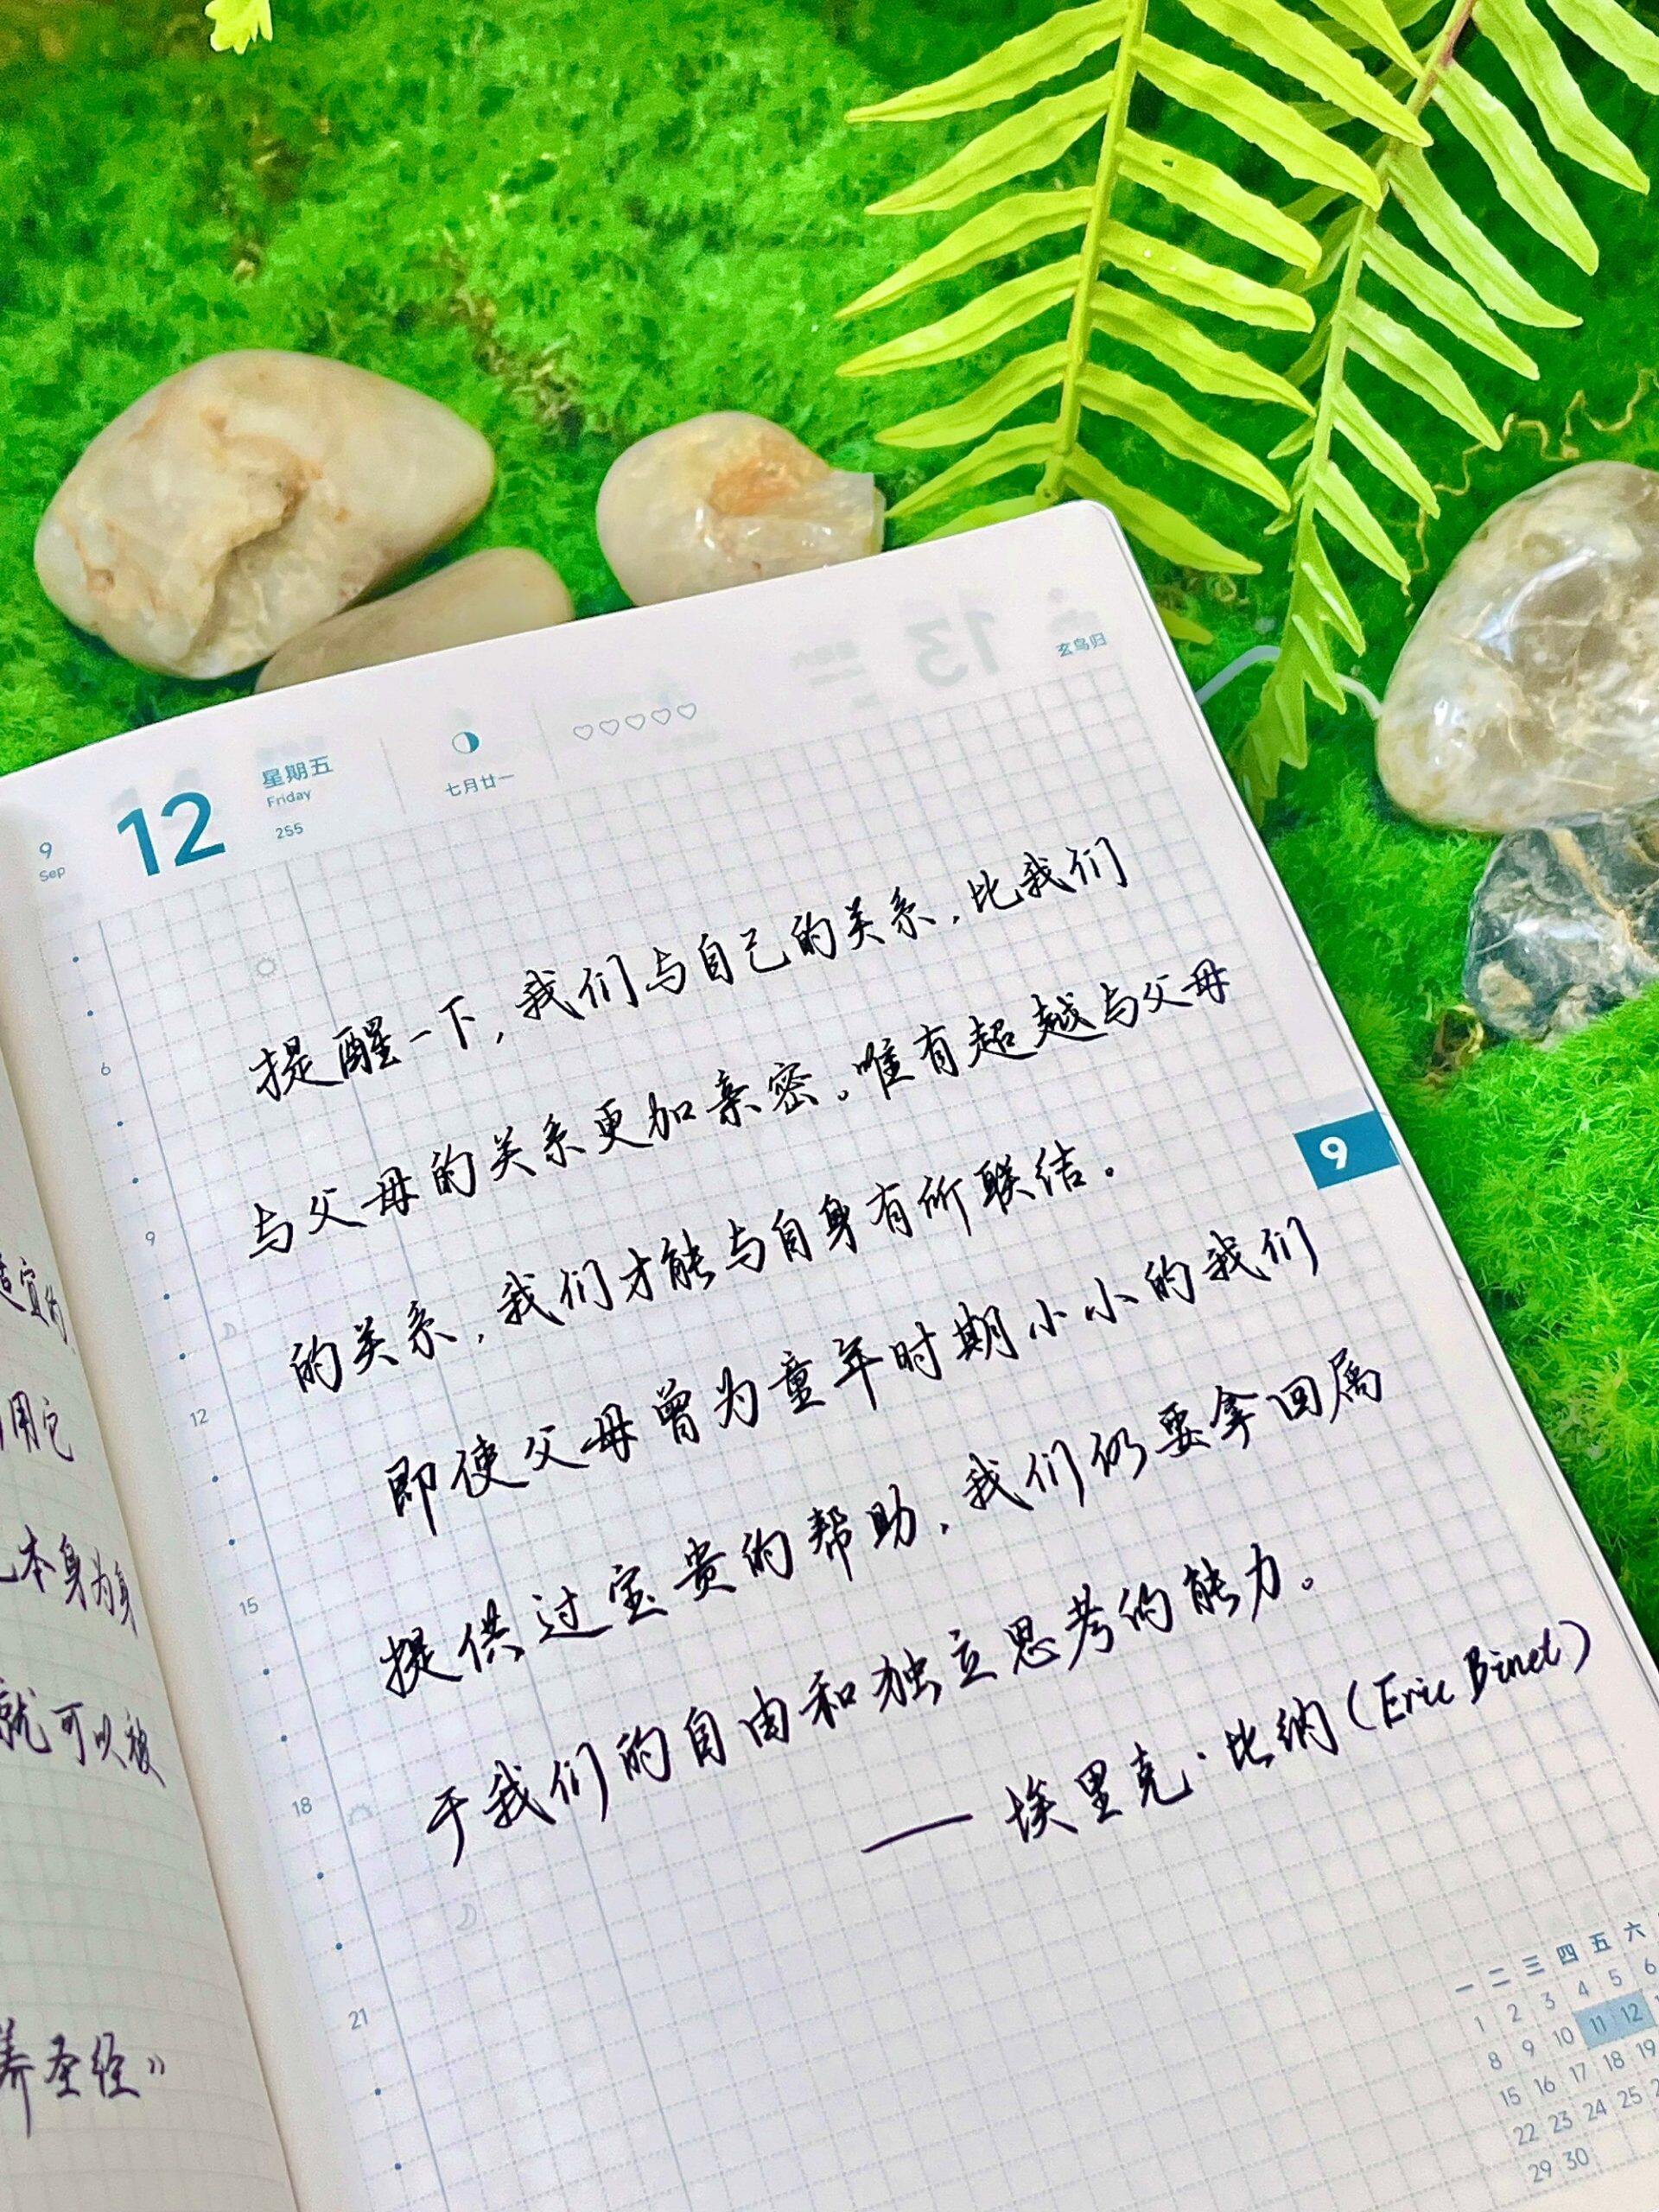 9
Sep
12
星期五
Friday
255
七月廿一
♡♡♡♡♡
玄鸟归
提醒一下,我们与自己的关系,比我们
与父母的关系更加亲密。唯有超越与父母
的关系,我们才能与自身有所联结。
即使父母曾为童年时期小小的我们
提供过宝贵的帮助,我们仍要拿回属
于我们的自由和独立思考的能力。
——埃里克·比纳(Eric Binet)
6
9
12
15
18
21
9
一 二 三 四 五 六
1 2 3 4 5 6
8 9 10 11 12
15 16 17 18 19
22 23 24 25
29 30
宜的
用它
本身为身
就可以被
养圣经》